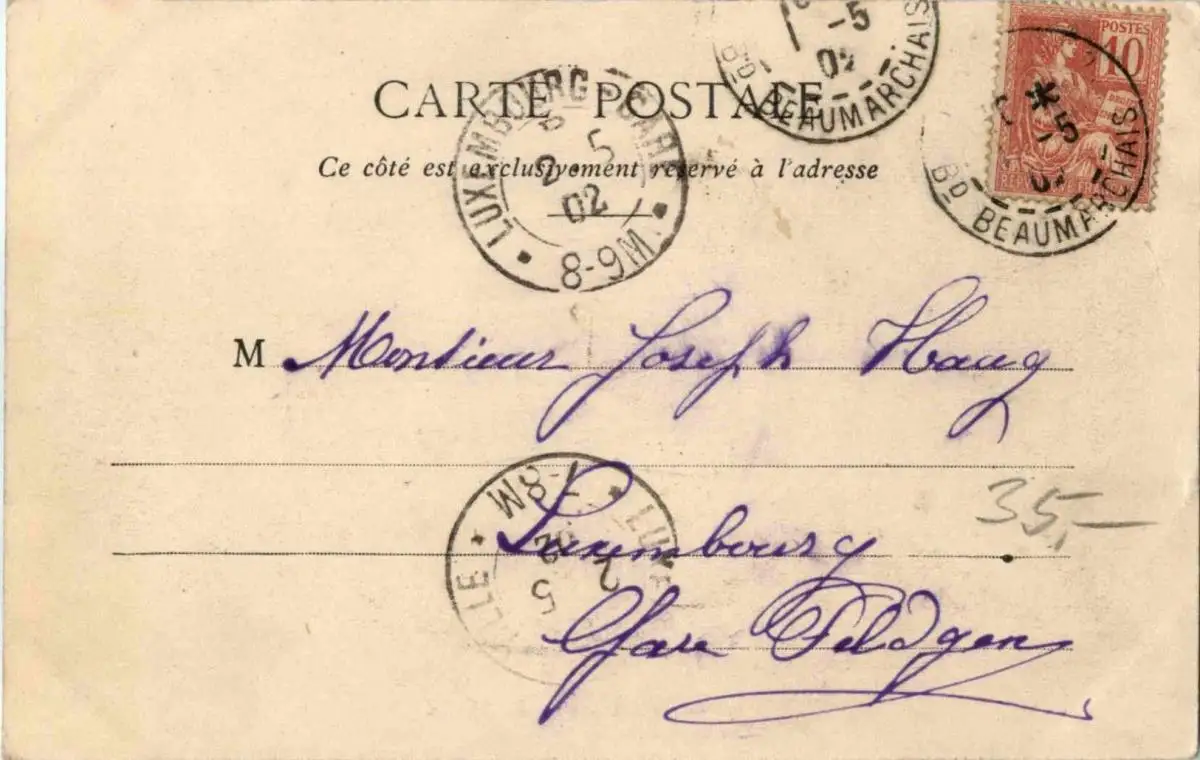 -5
02
BD BEAUMARCHAIS
POSTES
10
-5
02
BD BEAUMARCHAIS
CARTE POSTALE
LUXEMBOURG - GARE
2 5
02
8-9M
Ce côté est exclusivement réservé à l'adresse
M Monsieur Joseph Haug
7-8M
35,-
Luxembourg
2 5
Gare